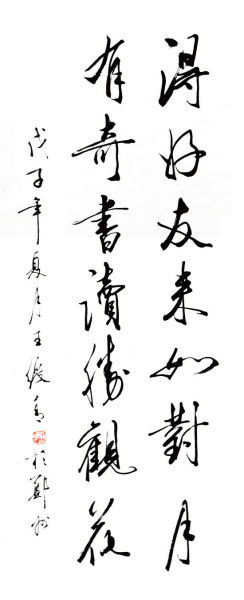 得好友来如對月
有奇書讀勝觀花
戊子年夏月王俊香於鄭州